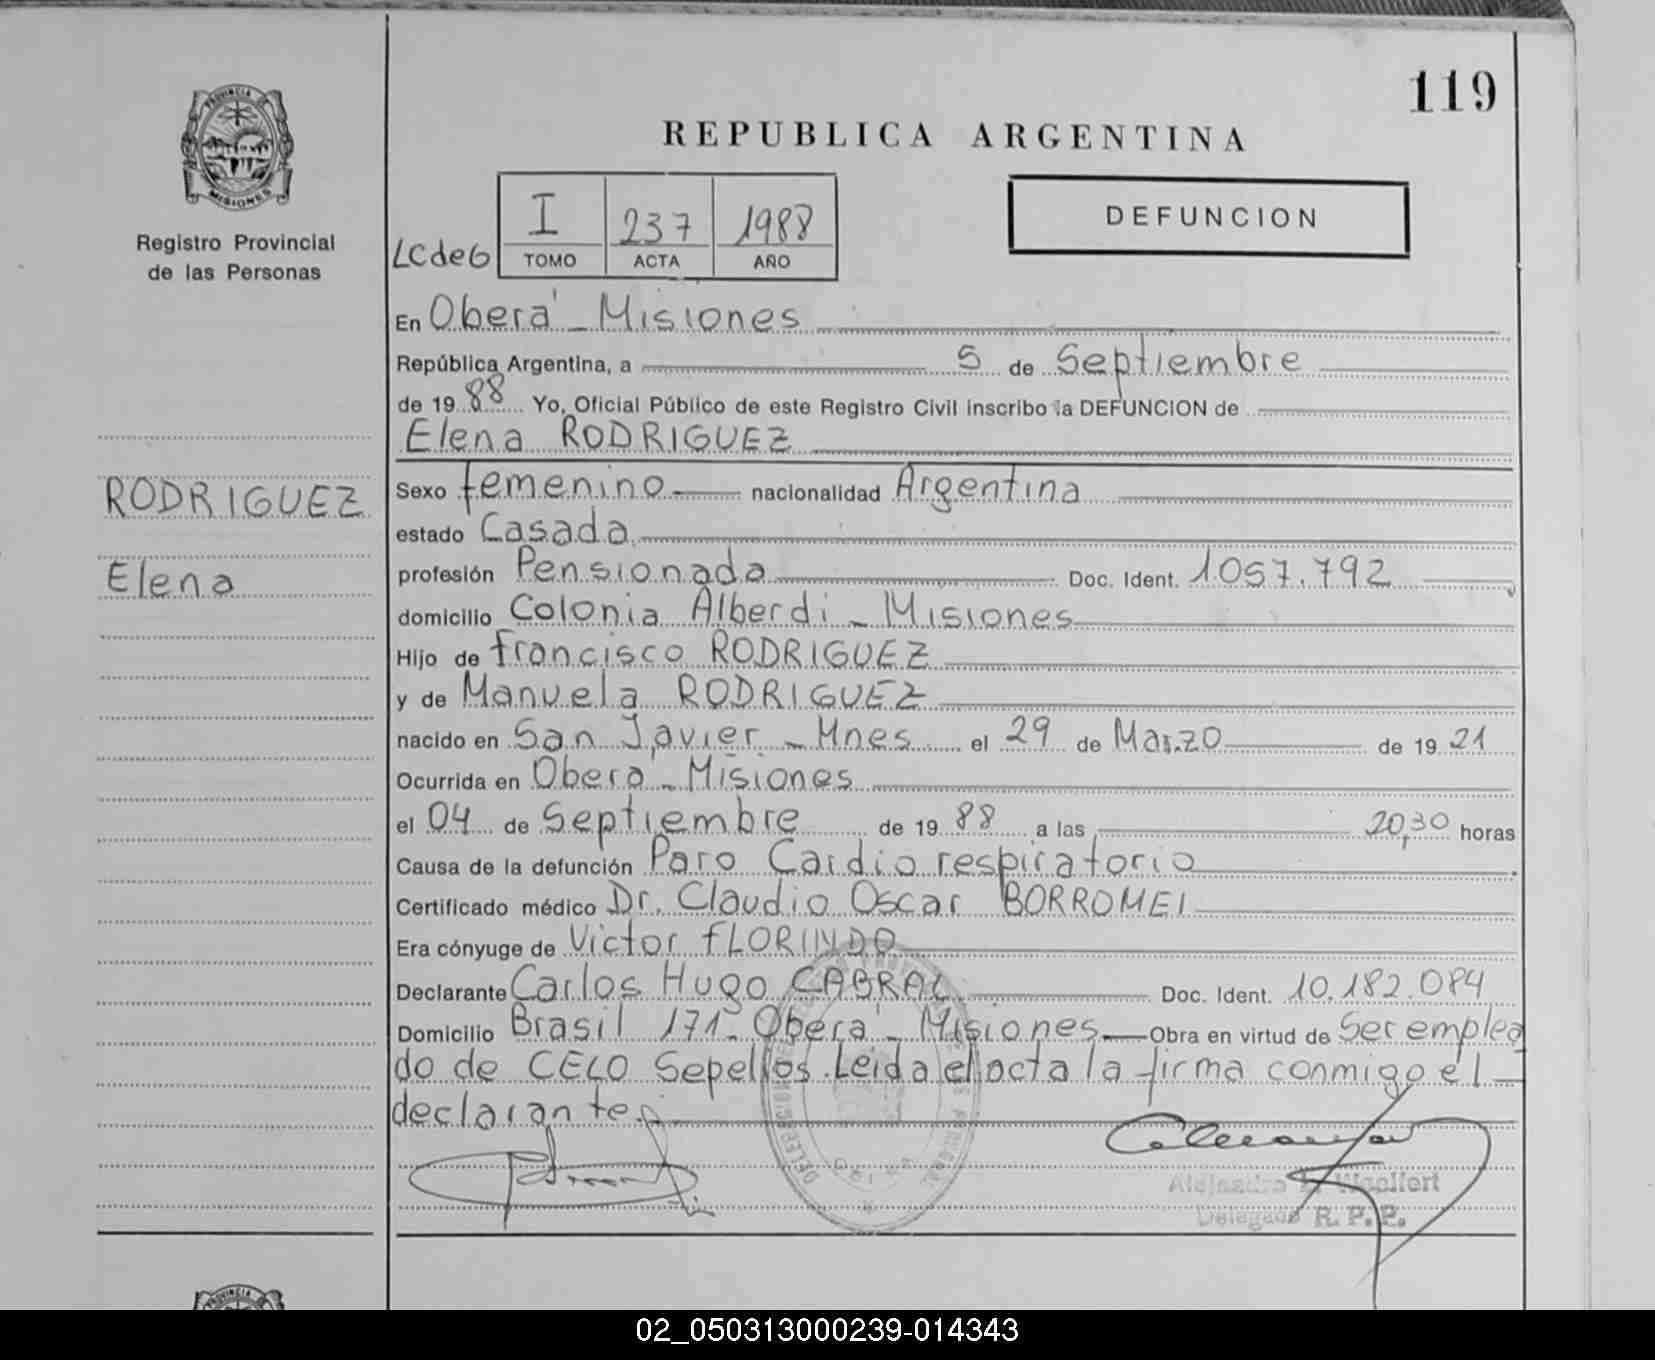 119
REPUBLICA ARGENTINA
PROVINCIA DE
MISIONES
Registro Provincial
de las Personas
DEFUNCION
LCde6
I 237 1988
TOMO ACTA AÑO
En Oberá - Misiones
República Argentina, a 5 de Septiembre
de 19 88 Yo, Oficial Público de este Registro Civil inscribo la DEFUNCION de
Elena RODRIGUEZ
RODRIGUEZ
Elena
Sexo femenino nacionalidad Argentina
estado Casada
profesión Pensionada Doc. Ident. 1.057.792
domicilio Colonia Alberdi - Misiones
Hijo de francisco RODRIGUEZ
y de Manuela RODRIGUEZ
nacido en San Javier - Mnes el 29 de Marzo de 19 21
Ocurrida en Oberá - Misiones
el 04 de Septiembre de 19 88 a las 20,30 horas
Causa de la defunción Paro Cardio respiratorio
Certificado médico Dr. Claudio Oscar BORROMEI
Era cónyuge de Victor fLORINDO
Declarante Carlos Hugo CABRAL Doc. Ident. 10.182.084
Domicilio Brasil 171 - Oberá - Misiones Obra en virtud de Ser emplea
do de CELO Sepelios. Leida el acta la firma conmigo el
declarante.
Alejandro Woelfert
Delegado R. P. P.
PROVINCIA
02_050313000239-014343